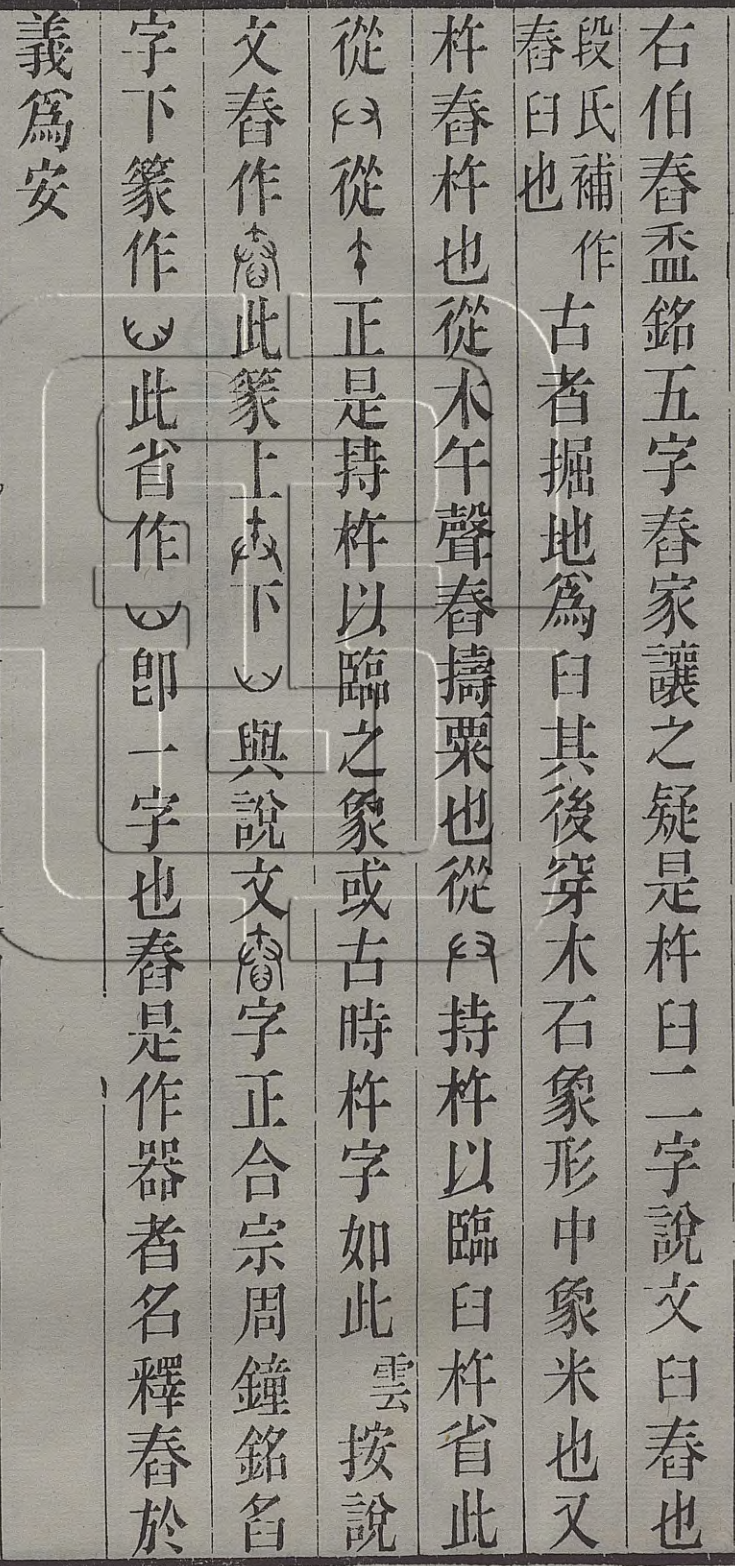 右伯舂盉銘五字舂家讓之疑是杵臼二字說文臼舂也
段氏補作舂臼也古者掘地爲臼其後穿木石象形中象米也又
杵舂杵也從木午聲舂擣粟也從持杵以臨臼杵省此
從從正是持杵以臨之象或古時杵字如此雲按說
文舂作此篆上下與說文字正合宗周鐘銘臽
字下篆作此省作卽一字也舂是作器者名釋舂於
義爲安